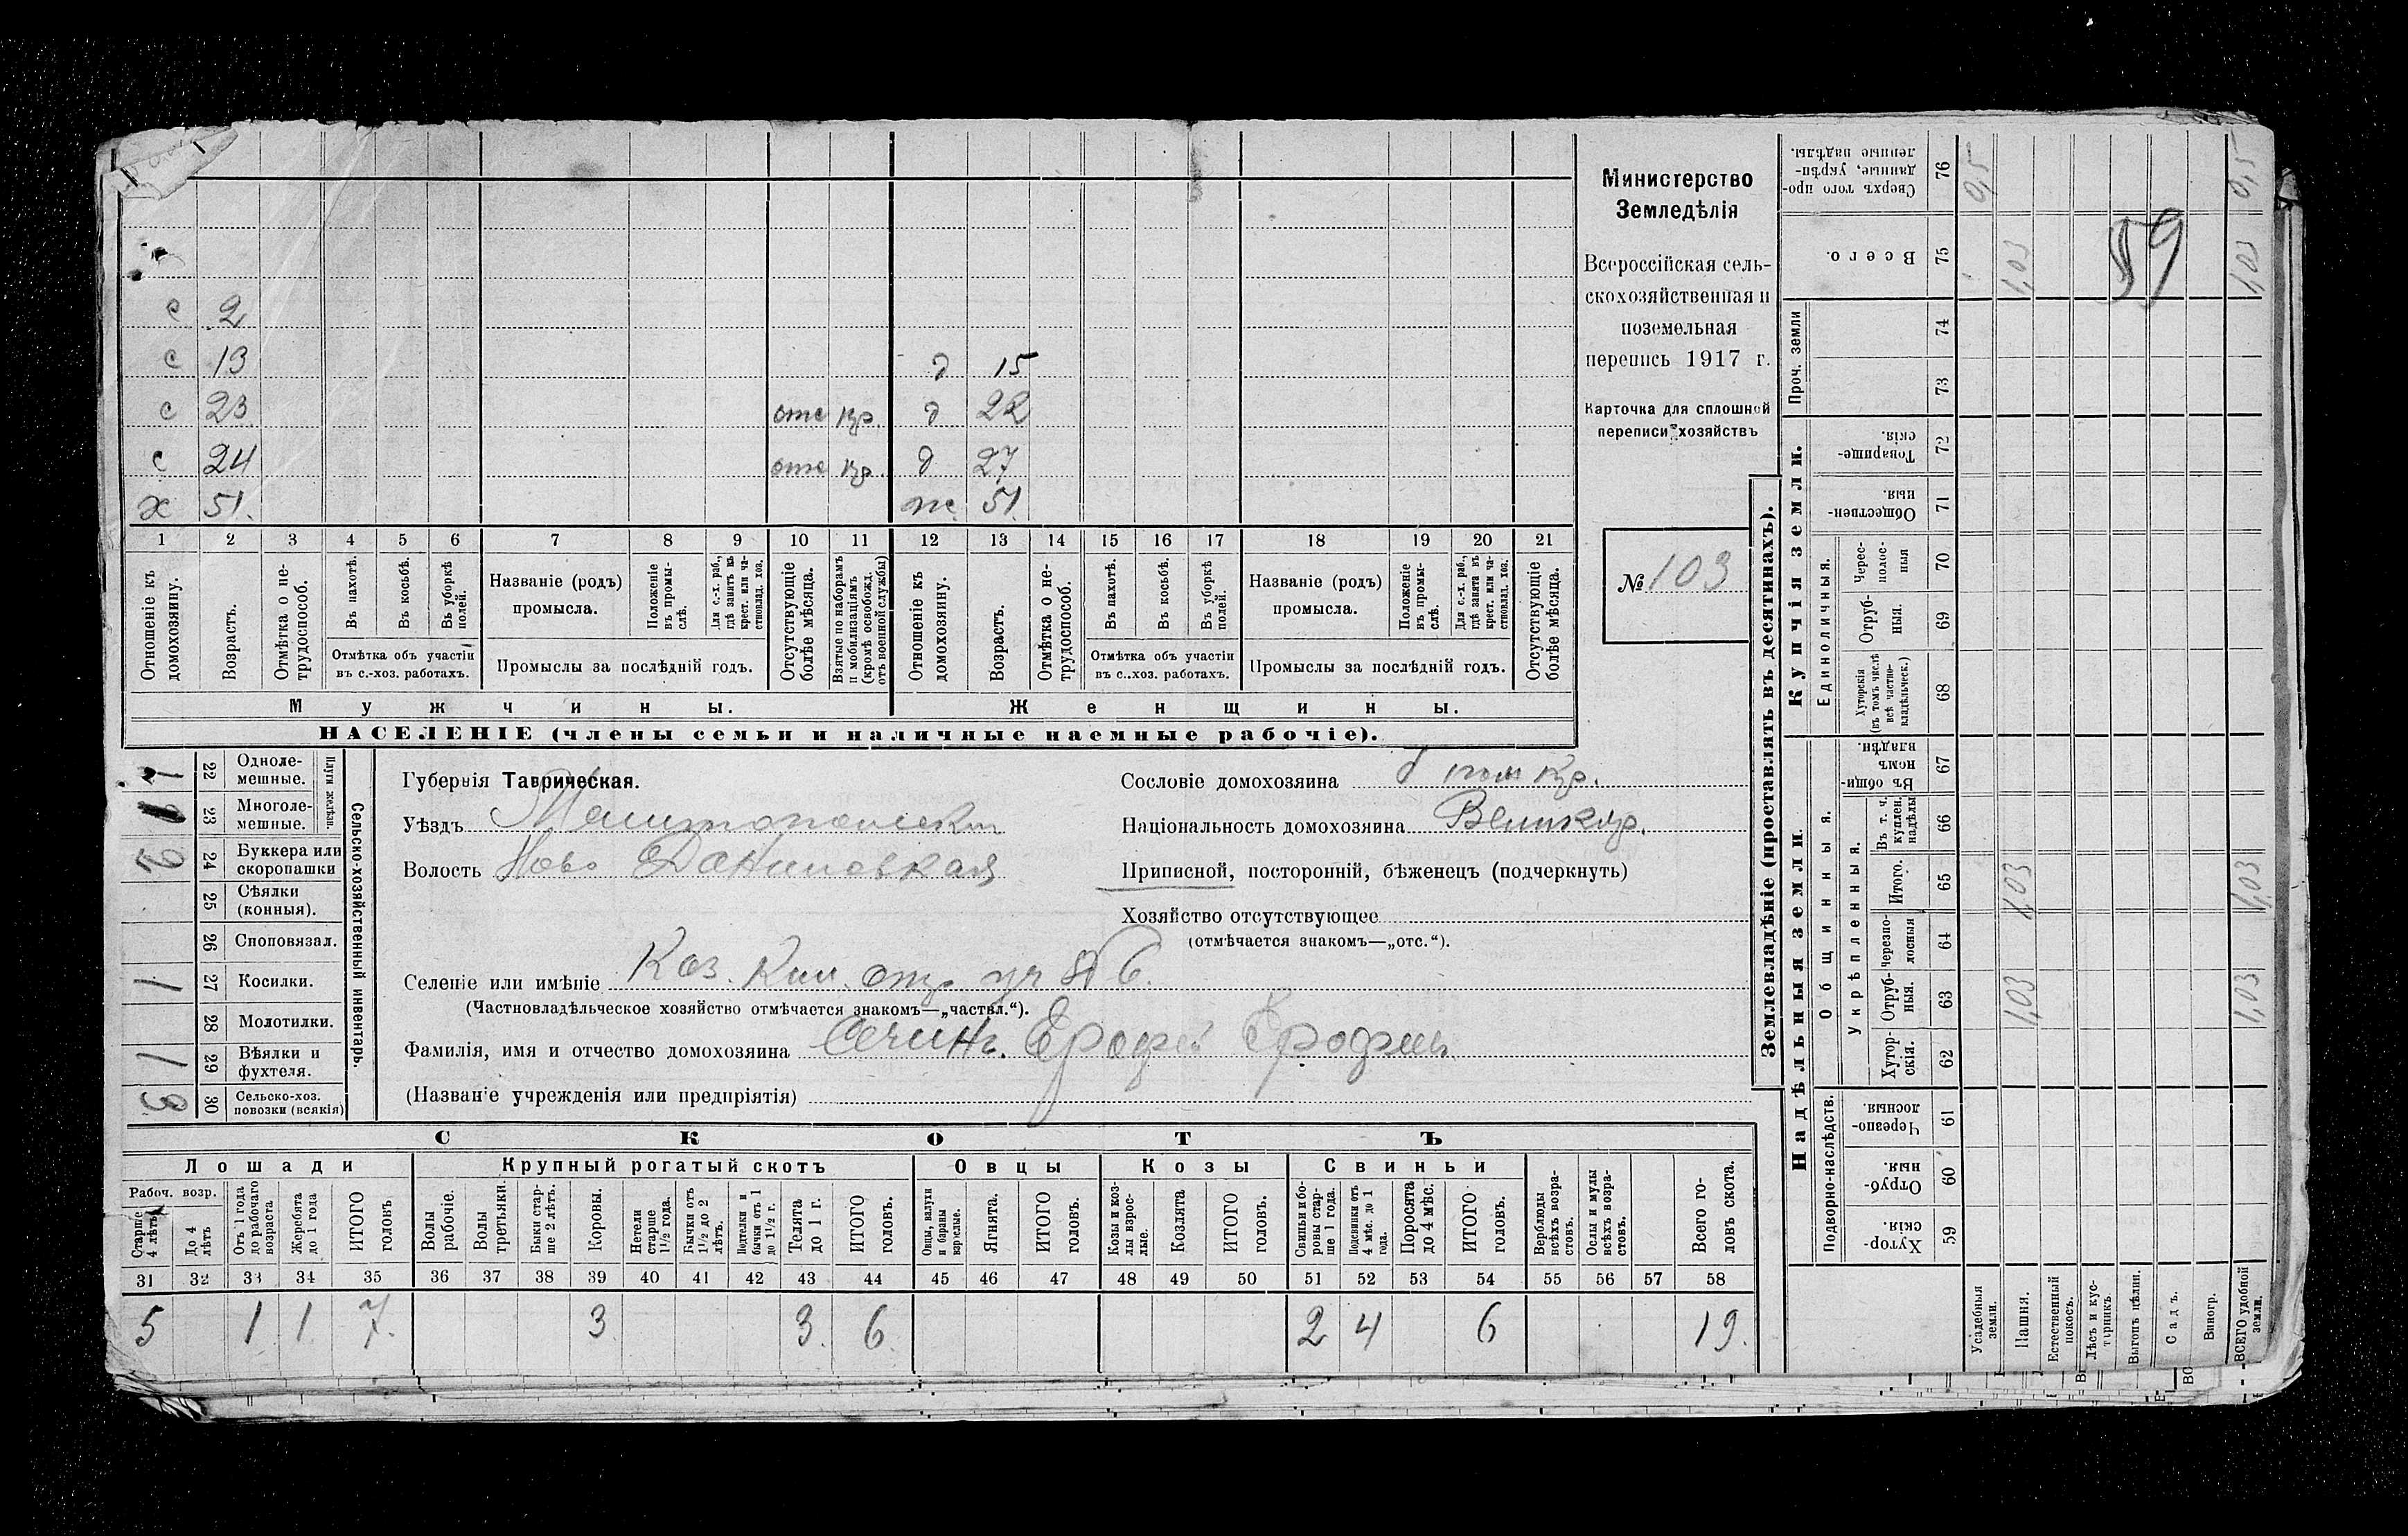 Министерство
Земледѣлія
Всероссійская сель-
скохозяйственная и
поземельная
перепись 1917 г.
Карточка для сплошной
переписи хозяйствъ
№ 103
59
с 2
с 13 д 15
с 23 отс кр. д 22
с 24 отс кр. д 27
х 51. ж. 51.
1 2 3 4 5 6 7 8 9 10 11 12 13 14 15 16 17 18 19 20 21
Отношеніе къ домохозяину.
Возрастъ.
Отмѣтка о не-трудоспособ.
Въ пахотѣ.
Въ косьбѣ.
Въ уборкѣ полей.
Отмѣтка объ участіи
въ с.-хоз. работахъ.
Названіе (родъ)
промысла.
Положеніе въ промы-слѣ.
Для с.-х. раб., гдѣ занятъ въ крест. или ча-стновлад. хоз.
Промыслы за послѣдній годъ.
Отсутствующіе болѣе мѣсяца.
Взятые по наборамъ и мобилизаціямъ (кромѣ освобожд. отъ военной службы)
Отношеніе къ домохозяину.
Возрастъ.
Отмѣтка о не-трудоспособ.
Въ пахотѣ.
Въ косьбѣ.
Въ уборкѣ полей.
Отмѣтка объ участіи
въ с..хоз. работахъ.
Названіе (родъ)
промысла.
Положеніе въ промы-слѣ.
Для с.-х. раб., гдѣ занята въ крест. или ча-стновлад. хоз.
Промыслы за послѣдній годъ.
Отсутствующіе болѣе мѣсяца.
Мужчины. Женщины.
НАСЕЛЕНІЕ (члены семьи и наличные наемные рабочіе).
Сельско-хозяйственный инвентарь.
Плуги желѣзн.
1 22 Одноле-мешные.
23 Многоле-мешные.
2 24 Буккера или скоропашки
25 Сѣялки (конныя).
26 Споповязал.
1 27 Косилки.
28 Молотилки.
1 29 Вѣялки и фухтеля.
3 30 Сельско-хоз. повозки (всякія)
Губернія Таврическая.
Уѣздъ Мелитопольскій
Волость Ново Даниловкая
Селеніе или имѣніе Каз. Кил. отр. уч № 6.
(Частновладѣльческое хозяйство отмѣчается знакомъ—„частвл.“).
Фамилія, имя и отчество домохозяина Сечинъ. Ерофей Ерофеев
(Названіе учрежденія или предпріятія)
Сословіе домохозяина б пом кр.
Національность домохозяина Великор.
Приписной, посторонній, бѣженецъ (подчеркнуть)
Хозяйство отсутствующее
(отмѣчается знакомъ—„отс.“).
СКОТЪ
Лошади Крупный рогатый скотъ Овцы Козы Свиньи
Рабоч. возр.
Старше 4 лѣтъ
До 4 лѣтъ
Отъ 1 года до рабочаго возраста
Жеребята до 1 года
ИТОГО головъ
Волы рабочіе.
Волы третьяки.
Быки стар-ше 2 лѣтъ.
Коровы.
Нетели старше 1½ года.
Бычки отъ 1½ до 2 лѣтъ.
Подтелки и бычки отъ 1 до 1½ г.
Телята до 1 г.
ИТОГО головъ.
Овцы, валухи и бараны взрослые.
Ягнята.
ИТОГО головъ.
Козы и коз-лы взрос-лые.
Козлята
ИТОГО головъ.
Свиньи и бо-ровы стар-ше 1 года.
Подсвинки отъ 4 мѣс. до 1 года.
Поросята до 4 мѣс.
ИТОГО головъ.
Верблюды всѣхъ возра-стовъ.
Ослы и мулы всѣхъ возра-стовъ.
Всего го-ловъ скота.
31 32 33 34 35 36 37 38 39 40 41 42 43 44 45 46 47 48 49 50 51 52 53 54 55 56 57 58
5 1 1 7. 3. 3. 6. 2 4 6 19.
Землевладѣніе (проставлять въ десятинахъ).
Надѣльныя земли. Купчія земли.
Подворно-наслѣдств.
Общинныя.
Укрѣпленныя.
Единоличныя.
Проч. земли
59 Хутор-скія.
60 Отруб-ныя.
61 Черезпо-лосныя.
62 Хутор-скія.
63 Отруб-ныя.
64 Черезпо-лосныя
65 Итого.
66 Въ т. ч. куплен. надѣлы
67 Въ общи-номъ владѣн.
68 Хуторскія (въ томъ числѣ всѣ частно-владѣльческ.)
69 Отруб-ныя.
70 Черес-полос-ныя
71 Обществен-ныя.
72 Товарище-скія.
73
74
75 Всего.
76 Сверхъ того про-данные, укрѣп-ленные надѣлы.
Усадебныя земли. 0,5
Пашня. 1,03 1,03 1,03
Естественный покосъ.
Лѣсъ и кус-тарникъ.
Выгонъ цѣлин.
Садъ.
Виногр.
ВСЕГО удобной земли. 1,03 1,03 1,03 0,5